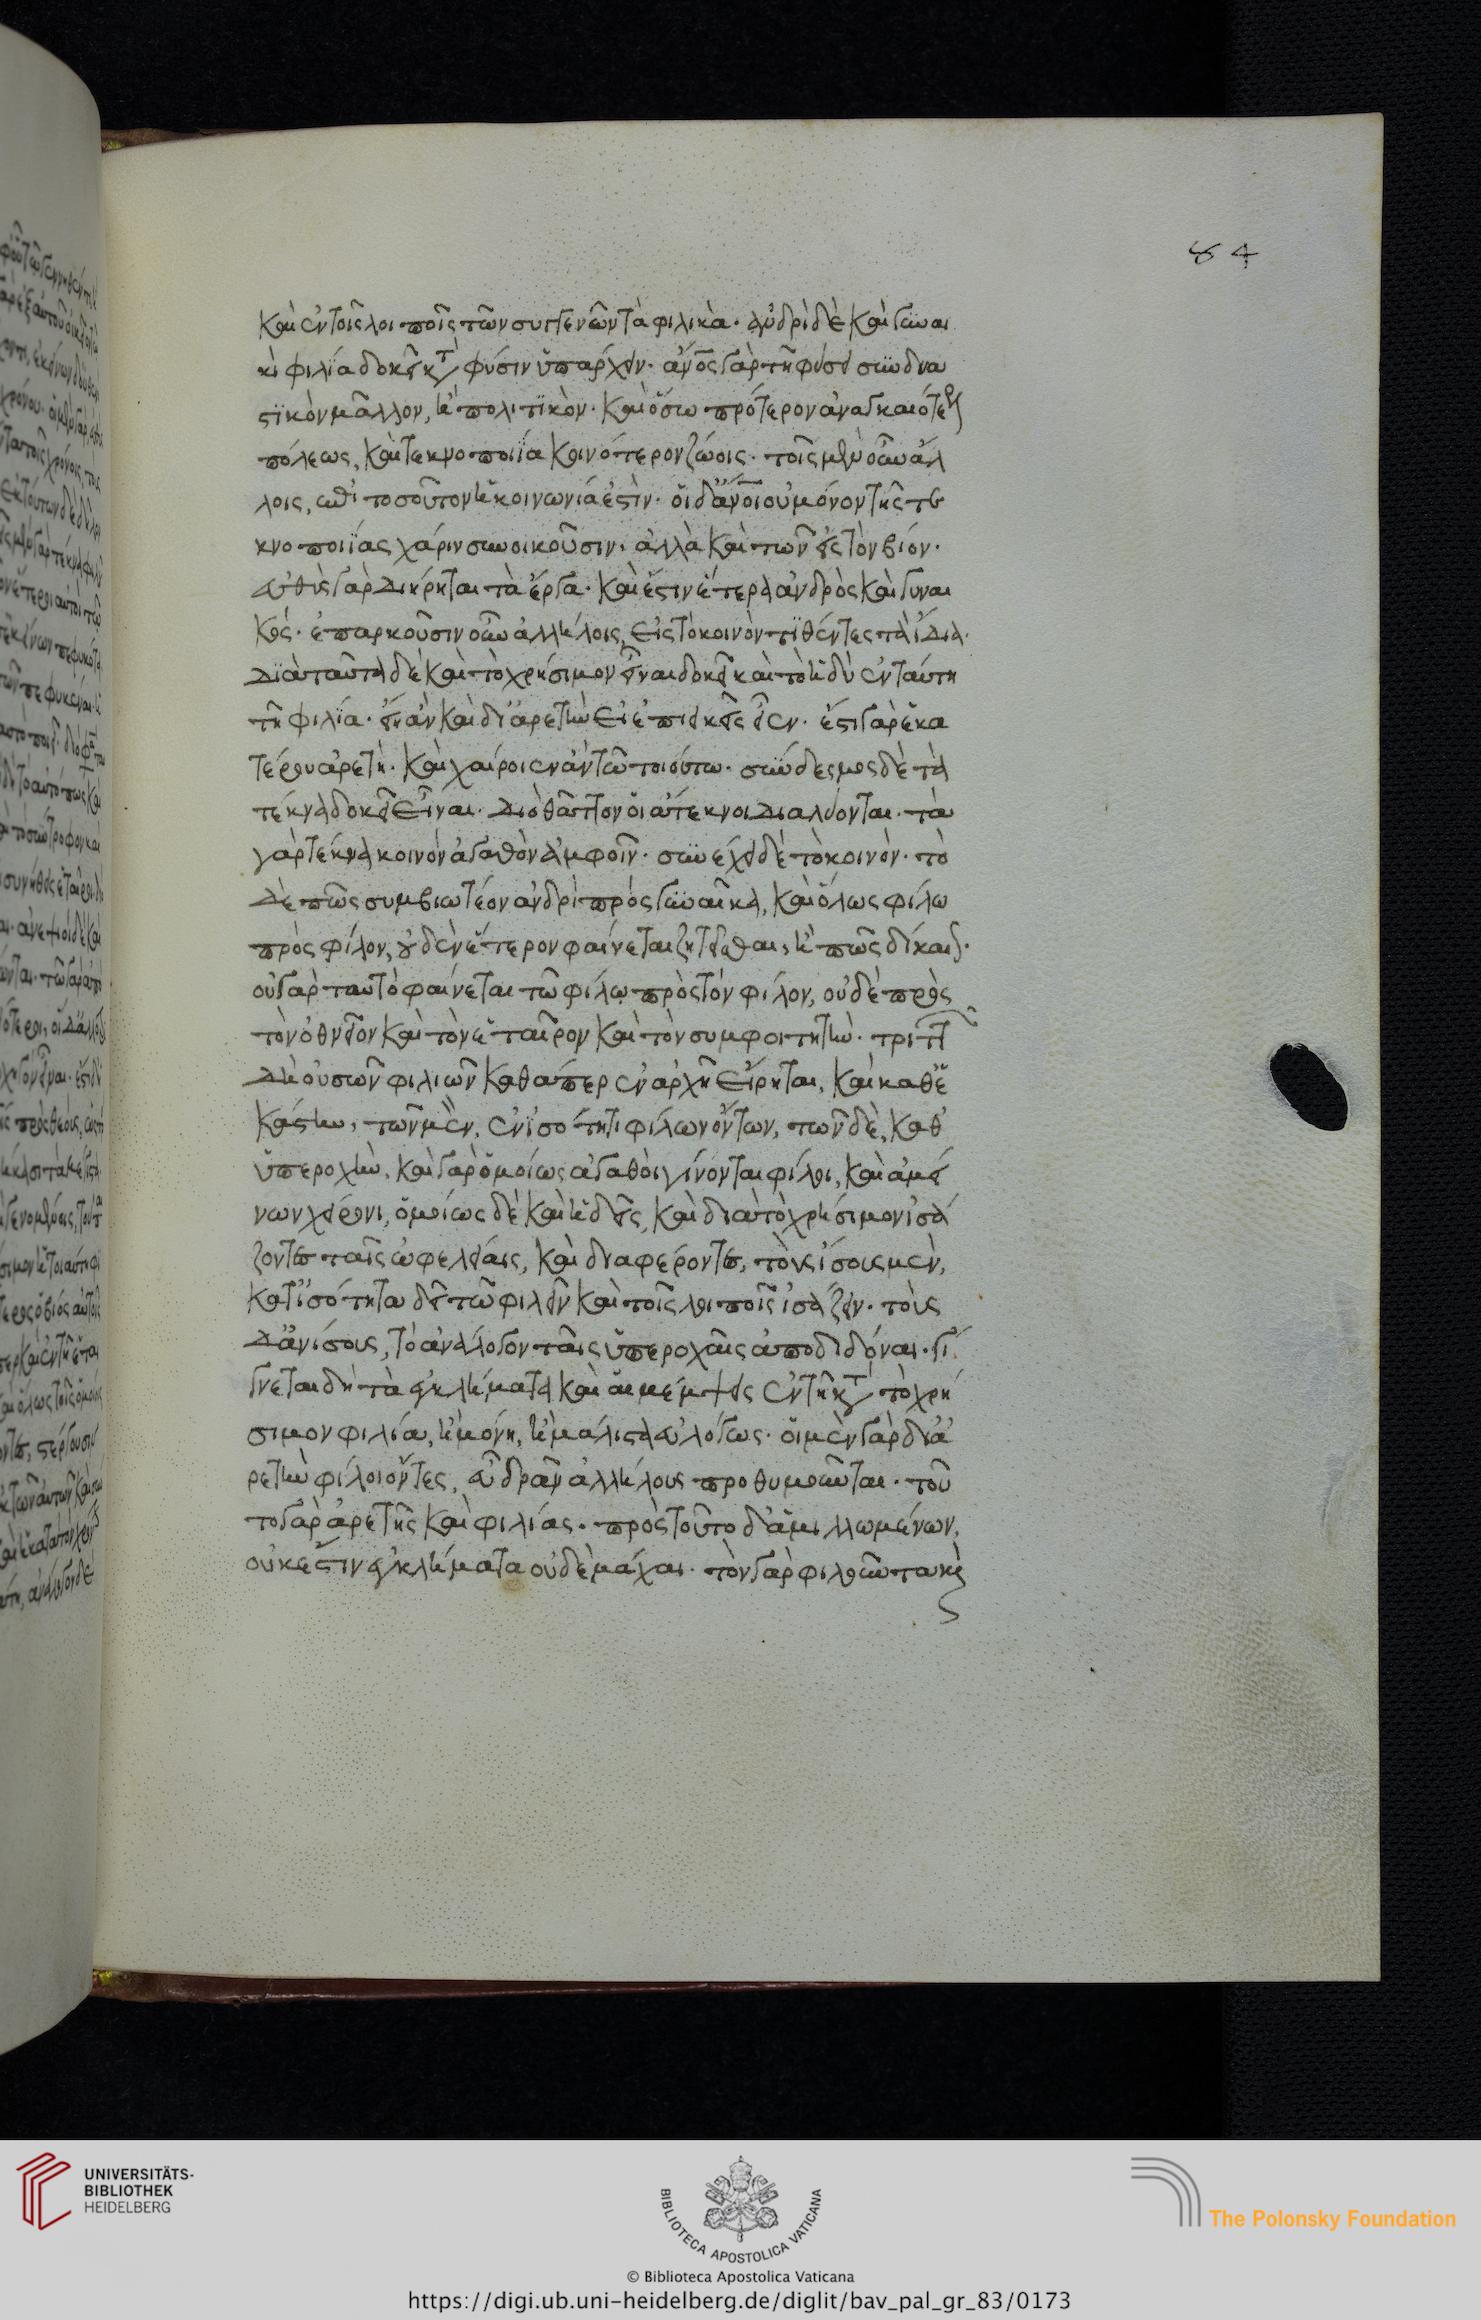 84
καὶ ἐν τοῖς λοιποῖς τῶν συγγενῶν τὰ φιλικά. ἀνδρὶ δὲ καὶ γυναι
κὶ φιλία δοκεῖ κτ̀ φύσιν ὑπάρχειν. ἄν̅ος γὰρ τῆ φύσει συνδυα
στικὸν μᾶλλον, ἢ πολιτικὸν. καὶ ὅσω πρότερον ἀναγκαιότερ
πόλεως, καὶ τεκνοποιΐα κοινότερον ζώοις. τοῖς μὲν οὖν ἄλ
λοις, ἐπὶ τοσοῦτον ἡ κοινωνία ἐστὶν. οἱ δ' ἄν̅οι οὐ μόνον τῆς τε
κνοποιΐας χάριν συνοικοῦσιν. ἀλλὰ καὶ τῶν εἰς τὸν βίον.
εὐθὺς γὰρ διήρηται τὰ ἔργα. καὶ ἔστιν ἕτερα ἀνδρὸς καὶ γυναι
κός. ἐπαρκοῦσιν οὖν ἀλλήλοις, εἰς τὸ κοινὸν τιθέντες τὰ ἴδια.
διὰ ταῦτα δὲ καὶ τὸ χρήσιμον εἶναι δοκεῖ καὶ τὸ ἡδὺ ἐν ταύτη
τῆ φιλία. εἴη ἂν καὶ δι' ἀρετὴν εἰ ἐπιεικεῖς εἶεν. ἔστι γὰρ ἑκα
τέρου ἀρετή. καὶ χαίροιεν ἂν τῶ τοιούτω. σύνδεσμος δὲ τὰ
τέκνα δοκεῖ εἶναι. διὸ θᾶττον οἱ ἄτεκνοι διαλύονται. τὰ
γὰρ τέκνα κοινὸν ἀγαθὸν ἀμφοῖν. συνέχει δὲ τὸ κοινὸν. τὸ
δὲ πῶς συμβιωτέον ἀνδρὶ πρὸς γυναῖκα, καὶ ὅλως φίλω
πρὸς φίλον, οὐδὲν ἕτερον φαίνεται ζητεῖσθαι, ἢ πῶς δίκαι.
οὐ γὰρ ταυτὸ φαίνεται τῶ φίλω πρὸς τὸν φίλον, οὐδὲ πρὸς
τὸν ὀθνεῖον καὶ τὸν ἑταῖρον καὶ τὸν συμφοιτητὴν. τριττ
δὴ οὐσῶν φιλιῶν καθάπερ ἐν ἀρχῆ εἴρηται, καὶ καθ' ἑ
κάστην, τῶν μὲν, ἐν ἰσότητι φίλων ὄντων, τῶν δὲ, καθ'
ὑπεροχὴν. καὶ γὰρ ὁμοίως ἀγαθοὶ γίνονται φίλοι, καὶ ἀμεί
νων χείρονι, ὁμοίως δὲ καὶ ἡδεῖς, καὶ διὰ τὸ χρήσιμον ἰσά
ζοντες ταῖς ὠφελείαις, καὶ διαφέροντες, τοὺς ἴσους μὲν,
κατ' ἰσότητα δεῖ τῶ φιλεῖν καὶ τοῖς λοιποῖς ἰσάζειν. τοὺς
δ' ἀνίσους, τὸ ἀνάλογον ταῖς ὑπεροχαῖς ἀποδιδόναι. γί
γνεται δὴ τὰ ἐγκλήματα καὶ αἱ μέμψεις ἐν τῆ κτ̀ τὸ χρή
σιμον φιλία, ἢ μόνη, ἢ μάλιστα εὐλόγως. οἱ μὲν γὰρ δι' ἀ
ρετὴν φίλοι ὄντες, εὖ δρᾶν ἀλλήλους προθυμοῦνται. τοῦ
το γὰρ ἀρετῆς καὶ φιλίας. πρὸς τοῦτο δ' ἁμιλλωμένων,
οὐκ ἔστιν ἐγκλήματα οὐδὲ μάχαι. τὸν γὰρ φιλοῦντα κὶ
UNIVERSITÄTS-
BIBLIOTHEK
HEIDELBERG
BIBLIOTECA APOSTOLICA VATICANA
The Polonsky Foundation
© Biblioteca Apostolica Vaticana
https://digi.ub.uni-heidelberg.de/diglit/bav_pal_gr_83/0173